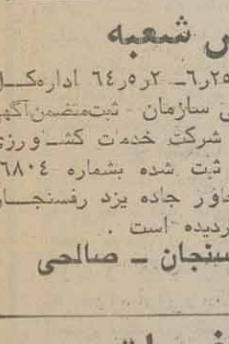 س شعبه
۲۵ر۶ـ ۲ر۵ر۶٤ ادارهکـل
ی سازمان ثبت متضمن آگهی
شرکت خدمات کشـاورزی
ثبت شده بشماره ۶۸۰٤
اور جاده یزد رفسنجـا
ردیده است .
سنجان ـ صالحی